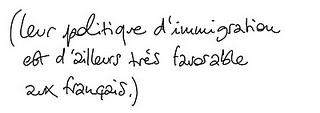 (leur politique d'immigration
est d'ailleurs très favorable
aux français.)